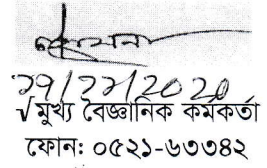 ২৯/১২/২০২০
√মুখ্য বৈজ্ঞানিক কর্মকর্তা
ফোন: ০৫২১-৬৩৩৪২